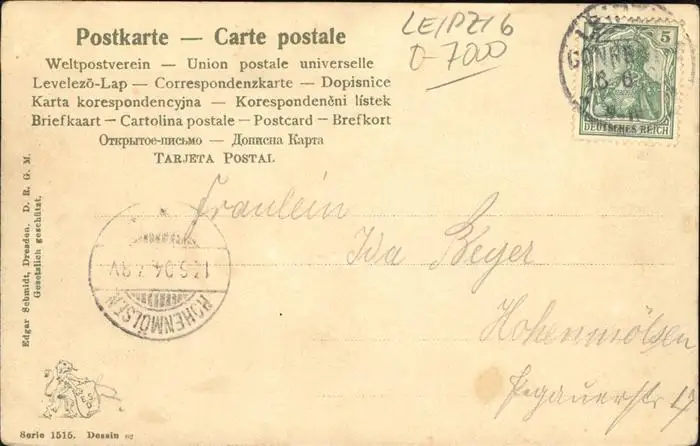 Postkarte — Carte postale
Weltpostverein — Union postale universelle
Levelező-Lap — Correspondenzkarte — Dopisnice
Karta korespondencyjna — Korespondenční lístek
Briefkaart — Cartolina postale — Postcard — Brefkort
Открытое-письмо — Дописна Карта
TARJETA POSTAL
LEIPZIG
O-7000
5
DEUTSCHES REICH
16.6
Fräulein
Ida Beyer
Hohenmölsen
Pegauerstr. 17
HOHENMÖLSEN
Edgar Schmidt, Dresden. D. R. G. M.
Gesetzlich geschützt.
Serie 1515. Dessin